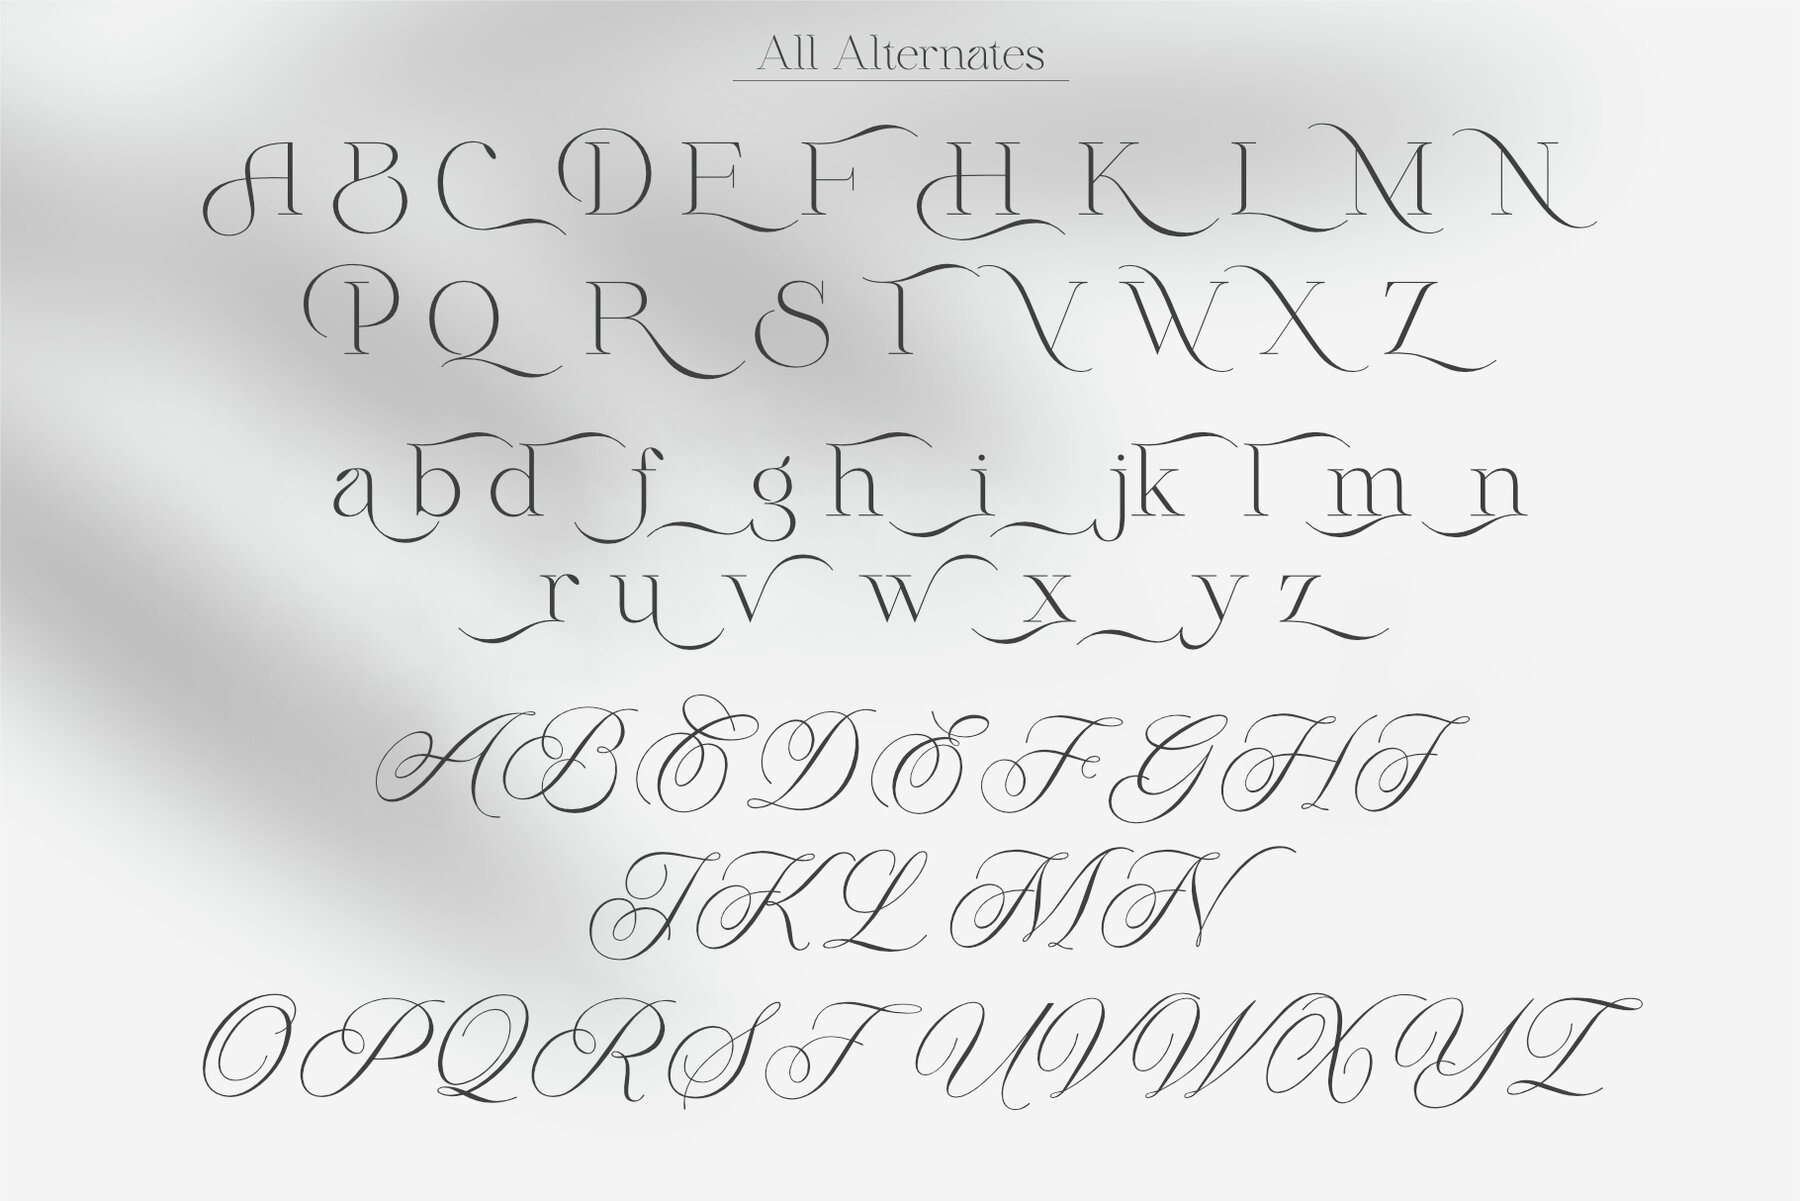 All Alternates
A B C D E F H K L M N
P Q R S T V W X Z
a b d f g h i j k l m n
r u v w x y z
A B C D E F G H I
J K L M N
O P Q R S T U V W X Y Z